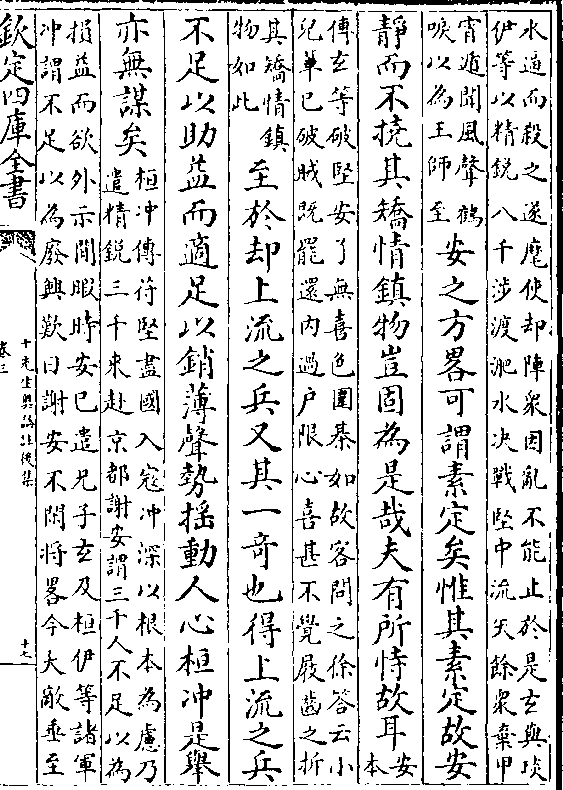 水逼而殺之遂麾使却陣衆因亂不能止於是玄與琰
伊等以精銳八千涉渡淝水决戰堅中流矢餘衆棄甲
宵遁聞風聲鶴
唳以為王師至
安之方畧可謂素定矣惟其素定故安
靜而不撓其矯情鎮物豈固為是哉夫有所恃故耳
安
本
傳玄等破堅安了無喜色圍棊如故客問之徐答云小
兒軰已破賊既罷還内過户限心喜甚不覺屐齒之折
其矯情鎮
物如此
至於却上流之兵又其一奇也得上流之兵
不足以助益而適足以銷薄聲勢揺動人心桓冲是舉
亦無謀矣
桓冲傳苻堅盡國入寇冲深以根本為慮乃
遣精銳三千来赴京都謝安謂三千人不足以為
損益而欲外示閒暇時安已遣兄子玄及桓伊等諸軍
冲謂不足以為廢興歎曰謝安不閑將畧今大敵垂至
欽定四庫全書
十先生奥論註後集
卷三
十七